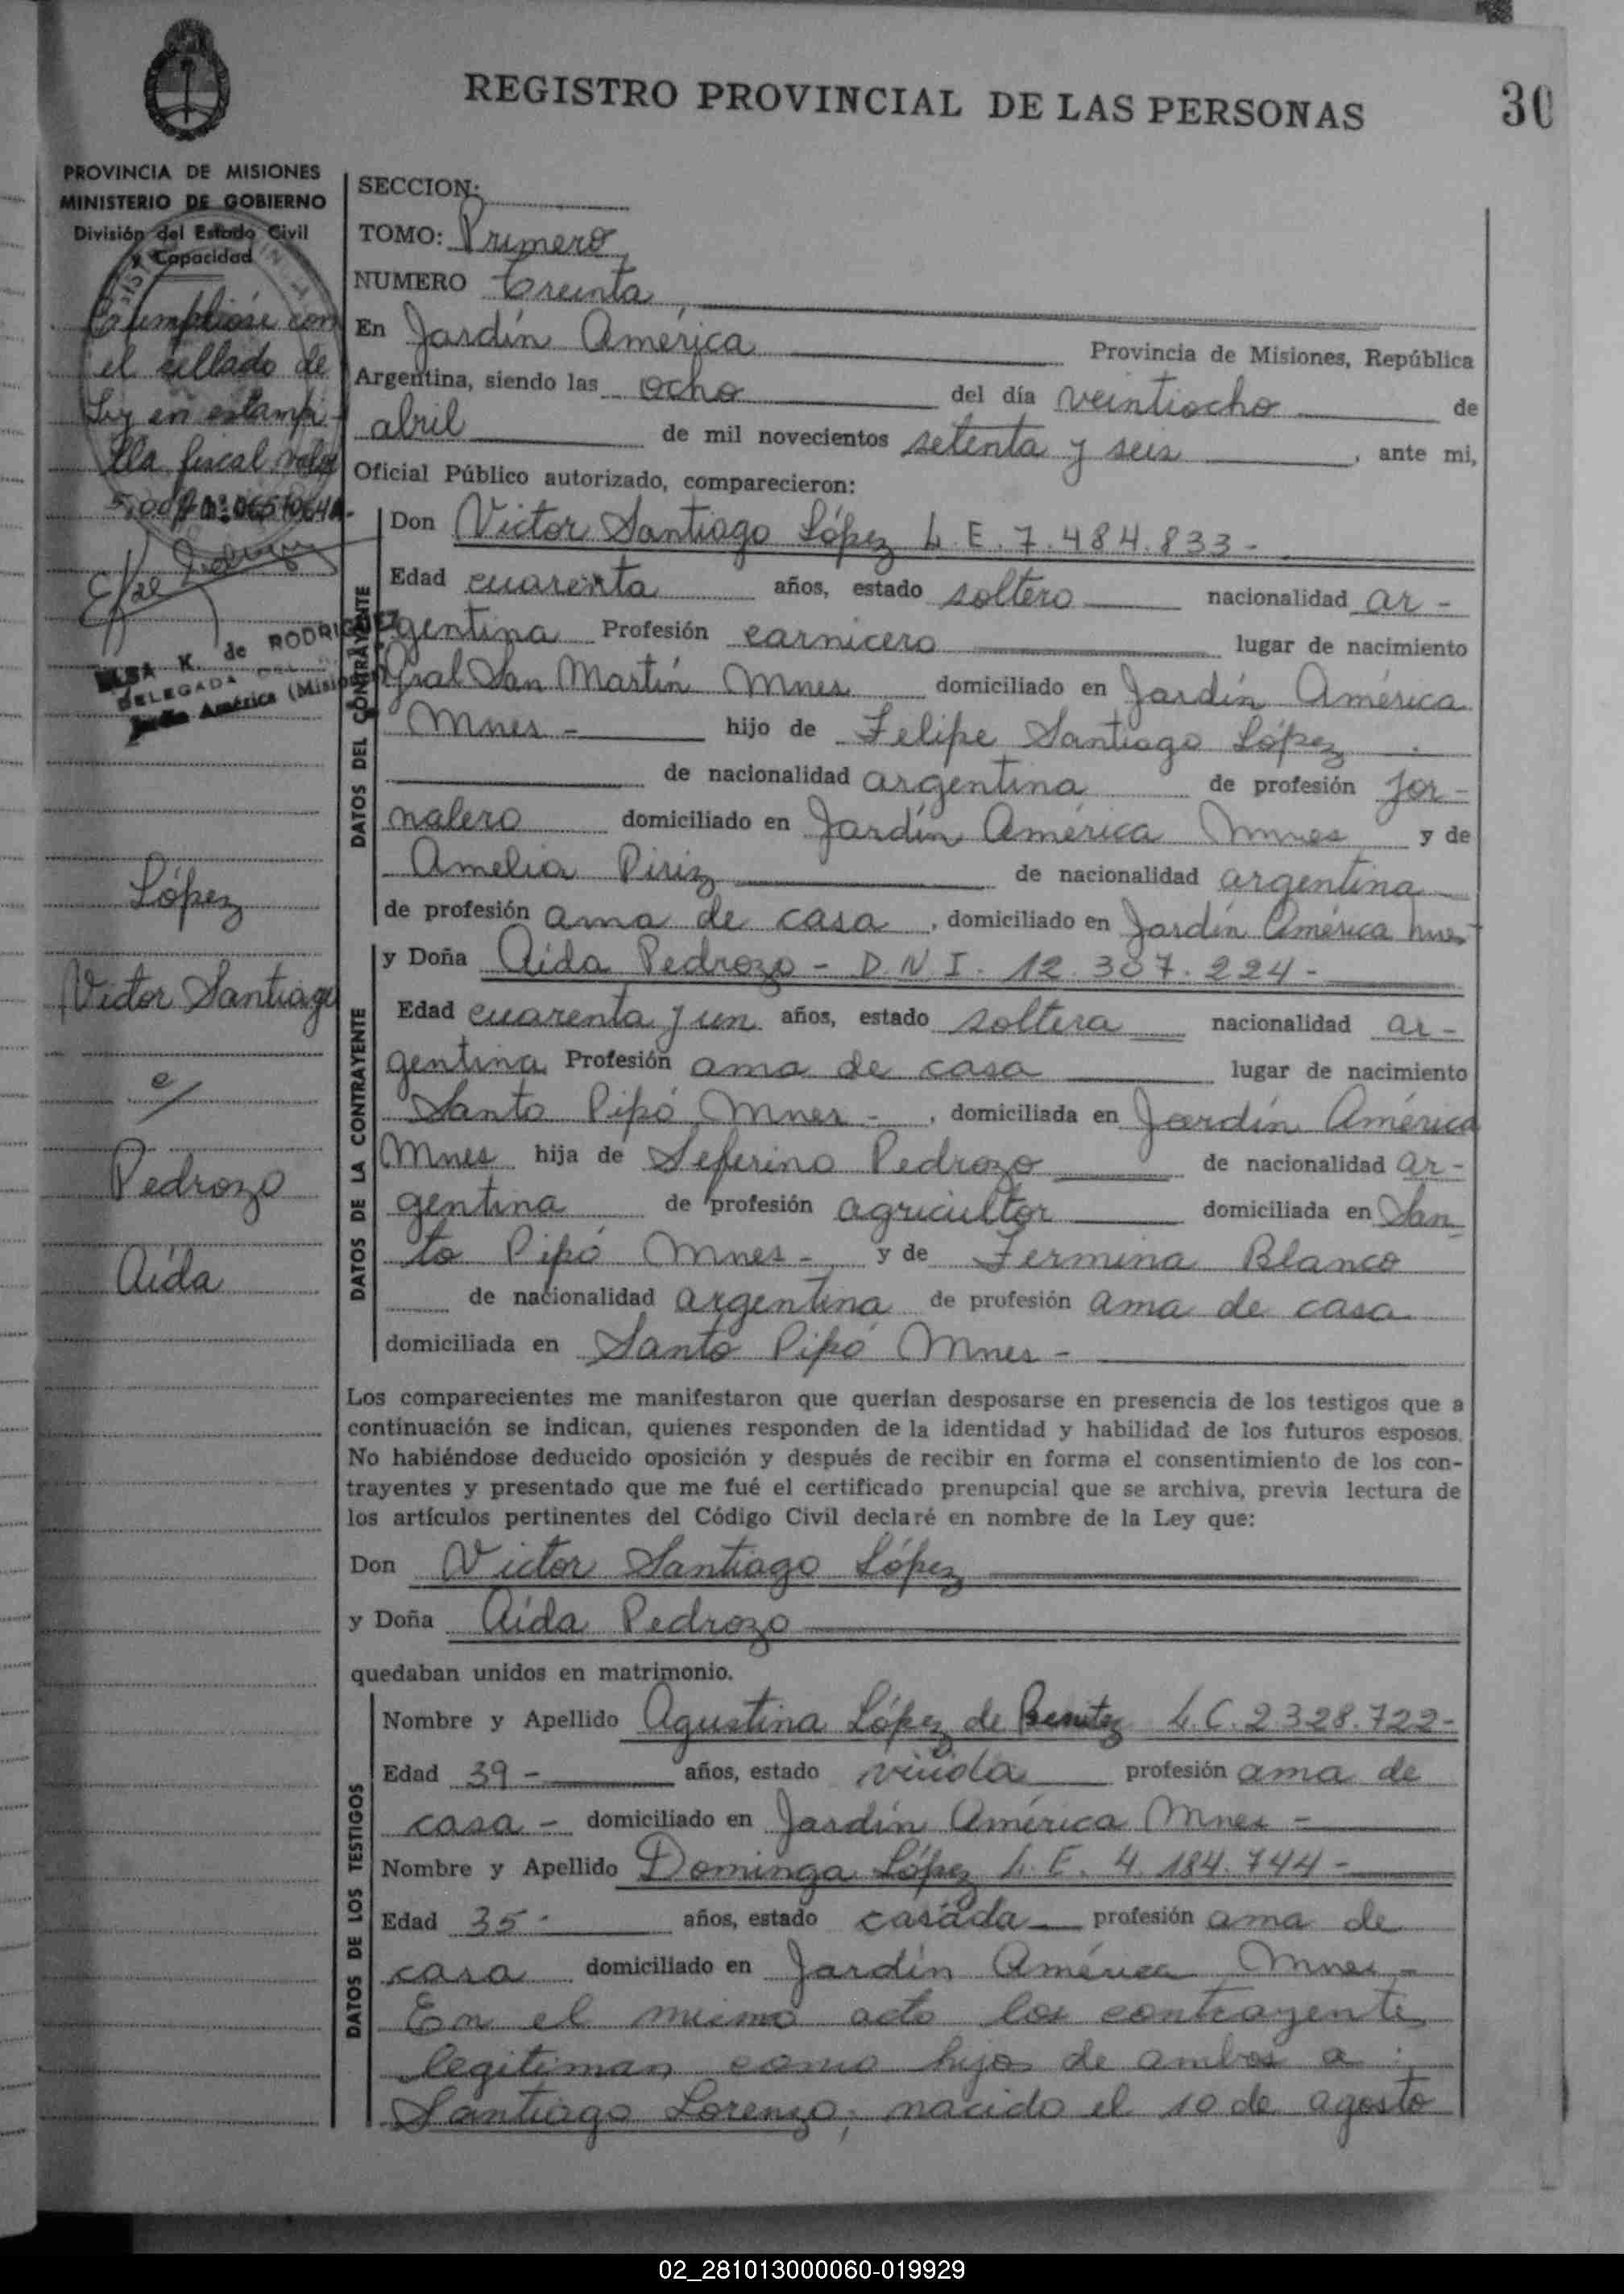 REGISTRO PROVINCIAL DE LAS PERSONAS
30
PROVINCIA DE MISIONES
MINISTERIO DE GOBIERNO
División del Estado Civil
y Capacidad
Cumplióse con
el sellado de
Ley en estampi-
lla fiscal valor
ELSA K. de RODRIGUEZ
DELEGADA
Jardín América (Misiones)
López
Victor Santiago
c/
Pedrozo
Aída
SECCION:
TOMO: Primero
NUMERO Treinta
En Jardín América Provincia de Misiones, República
Argentina, siendo las ocho del día veintiocho de
abril de mil novecientos setenta y seis, ante mi,
Oficial Público autorizado, comparecieron:
DATOS DEL CONTRAYENTE
Don Victor Santiago López L.E. 7.484.833-
Edad cuarenta años, estado soltero nacionalidad ar-
gentina Profesión carnicero lugar de nacimiento
Gral San Martín Mnes domiciliado en Jardín América
Mnes - hijo de Felipe Santiago López
de nacionalidad argentina de profesión jor-
nalero domiciliado en Jardín América Mnes y de
Amelia Piriz de nacionalidad argentina
de profesión ama de casa, domiciliado en Jardín América Mnes
DATOS DE LA CONTRAYENTE
y Doña Aída Pedrozo - D.N.I. 12.307.224-
Edad cuarenta y un años, estado soltera nacionalidad ar-
gentina Profesión ama de casa lugar de nacimiento
Santo Pipó Mnes -, domiciliada en Jardín América
Mnes hija de Seferino Pedrozo de nacionalidad ar-
gentina de profesión agricultor domiciliada en San
to Pipó Mnes - y de Fermina Blanco
de nacionalidad argentina de profesión ama de casa
domiciliada en Santo Pipó Mnes -
Los comparecientes me manifestaron que querían desposarse en presencia de los testigos que a
continuación se indican, quienes responden de la identidad y habilidad de los futuros esposos.
No habiéndose deducido oposición y después de recibir en forma el consentimiento de los con-
trayentes y presentado que me fué el certificado prenupcial que se archiva, previa lectura de
los artículos pertinentes del Código Civil declaré en nombre de la Ley que:
Don Victor Santiago López
y Doña Aída Pedrozo
quedaban unidos en matrimonio.
DATOS DE LOS TESTIGOS
Nombre y Apellido Agustina López de Benitez L.C. 2328.722-
Edad 39 - años, estado viuda profesión ama de
casa - domiciliado en Jardín América Mnes -
Nombre y Apellido Dominga López L.E. 4.184.744-
Edad 35 - años, estado casada profesión ama de
casa domiciliado en Jardín América Mnes -
En el mismo acto los contrayente
legitiman como hijos de ambos a:
Santiago Lorenzo, nacido el 10 de agosto
02_281013000060-019929